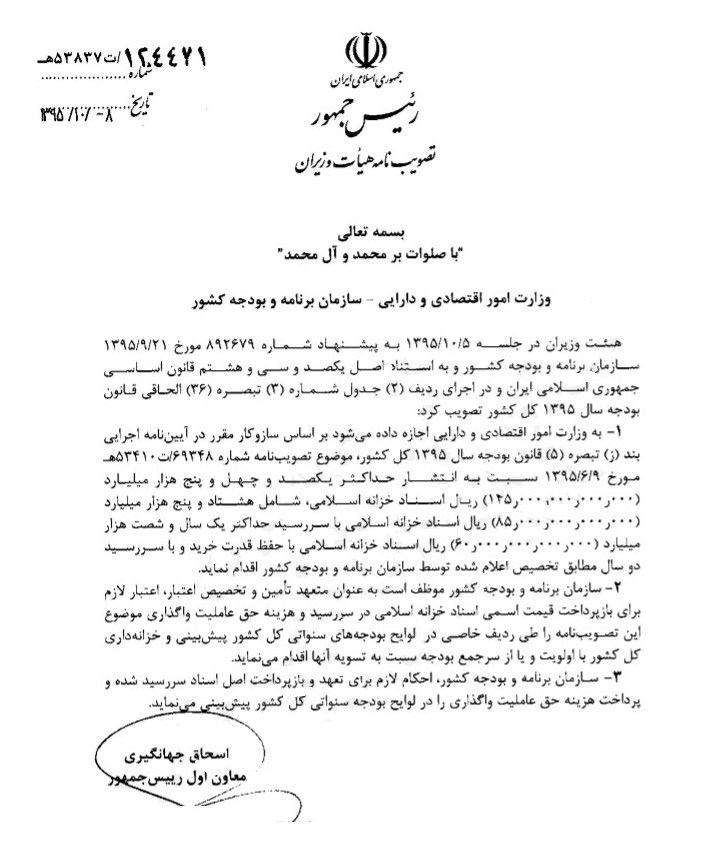 ۱۲۴۴۷۱/ت۵۳۸۳۷هـ
شماره
تاریخ ۱۳۹۵/۱۰/۰۸
جمهوری اسلامی ایران
رئیس جمهور
تصویب نامه هیأت وزیران
بسمه تعالی
"با صلوات بر محمد و آل محمد"
وزارت امور اقتصادی و دارایی – سازمان برنامه و بودجه کشور
هیئت وزیران در جلسه ۱۳۹۵/۱۰/۵ به پیشنهاد شماره ۸۹۲۶۷۹ مورخ ۱۳۹۵/۹/۲۱
سازمان برنامه و بودجه کشور و به استناد اصل یکصد و سی و هشتم قانون اساسی
جمهوری اسلامی ایران و در اجرای ردیف (۲) جدول شماره (۳) تبصره (۳۶) الحاقی قانون
بودجه سال ۱۳۹۵ کل کشور تصویب کرد:
۱- به وزارت امور اقتصادی و دارایی اجازه داده می‌شود بر اساس سازوکار مقرر در آیین‌نامه اجرایی
بند (ز) تبصره (۵) قانون بودجه سال ۱۳۹۵ کل کشور، موضوع تصویب‌نامه شماره ۶۹۳۴۸/ت۵۳۴۱۰هـ
مورخ ۱۳۹۵/۶/۹ نسبت به انتشار حداکثر یکصد و چهل و پنج هزار میلیارد
(۱۴۵ر۰۰۰ر۰۰۰ر۰۰۰ر۰۰۰) ریال اسناد خزانه اسلامی، شامل هشتاد و پنج هزار میلیارد
(۸۵ر۰۰۰ر۰۰۰ر۰۰۰ر۰۰۰) ریال اسناد خزانه اسلامی با سررسید حداکثر یک سال و شصت هزار
میلیارد (۶۰ر۰۰۰ر۰۰۰ر۰۰۰ر۰۰۰) ریال اسناد خزانه اسلامی با حفظ قدرت خرید و با سررسید
دو سال مطابق تخصیص اعلام شده توسط سازمان برنامه و بودجه کشور اقدام نماید.
۲- سازمان برنامه و بودجه کشور موظف است به عنوان متعهد تأمین و تخصیص اعتبار، اعتبار لازم
برای بازپرداخت قیمت اسمی اسناد خزانه اسلامی در سررسید و هزینه حق عاملیت واگذاری موضوع
این تصویب‌نامه را طی ردیف خاصی در لوایح بودجه‌های سنواتی کل کشور پیش‌بینی و خزانه‌داری
کل کشور با اولویت و یا از سرجمع بودجه نسبت به تسویه آنها اقدام می‌نماید.
۳- سازمان برنامه و بودجه کشور، احکام لازم برای تعهد و بازپرداخت اصل اسناد سررسید شده و
پرداخت هزینه حق عاملیت واگذاری را در لوایح بودجه سنواتی کل کشور پیش‌بینی می‌نماید.
اسحاق جهانگیری
معاون اول رییس‌جمهور